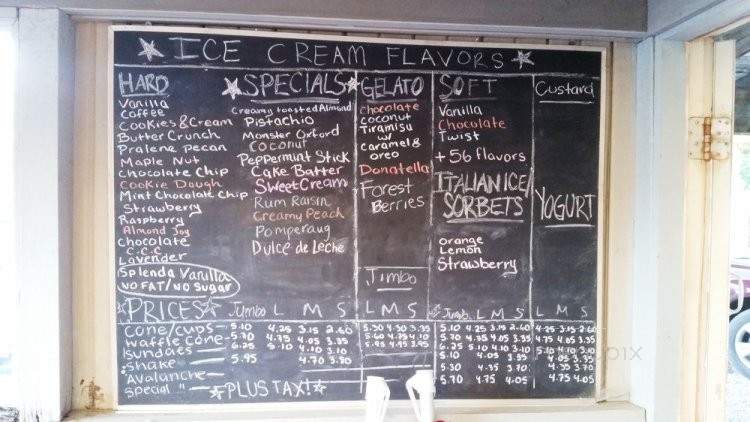 ICE CREAM FLAVORS
HARD
Vanilla
Coffee
Cookies & Cream
Butter Crunch
Pralene pecan
Maple Nut
Chocolate Chip
Cookie Dough
Mint Chocolate Chip
Strawberry
Raspberry
Almond Joy
Chocolate
C.C.C
Lavender
Splenda Vanilla
NO FAT/NO Sugar
SPECIALS
Creamy toasted Almond
Pistachio
Monster Oxford
Coconut
Peppermint Stick
Cake Batter
Sweet Cream
Rum Raisin
Creamy Peach
Pomperaug
Dulce de Leche
GELATO
Chocolate
Coconut
Tiramisu
w/
caramel &
oreo
Donatella
Forest
Berries
Jimbo
SOFT
Vanilla
Chocolate
Twist
+56 flavors
ITALIAN ICE/
SORBETS
orange
Lemon
Strawberry
Custard
YOGURT
PRICES Jumbo L M S L M S Jumbo L M S L M S
Cone/cups- 5.10 4.25 3.15 2.60 5.30 4.30 3.35 5.10 4.25 3.15 2.60 4.25 3.15 2.60
Waffle Cone- 5.70 4.75 4.05 3.35 5.70 4.75 4.05 3.35 4.75 4.05 3.35
Sundaes - 6.25 5.10 4.10 3.10 6.25 5.10 4.10 3.10 5.10 4.10 3.10
Shake - 5.95 4.70 3.80 5.10 4.05 3.35 4.05 3.35
"Avalanche - 5.30 4.35 3.70 4.35 3.70
Special " - 5.70 4.75 4.05 4.75 4.05
PLUS TAX!